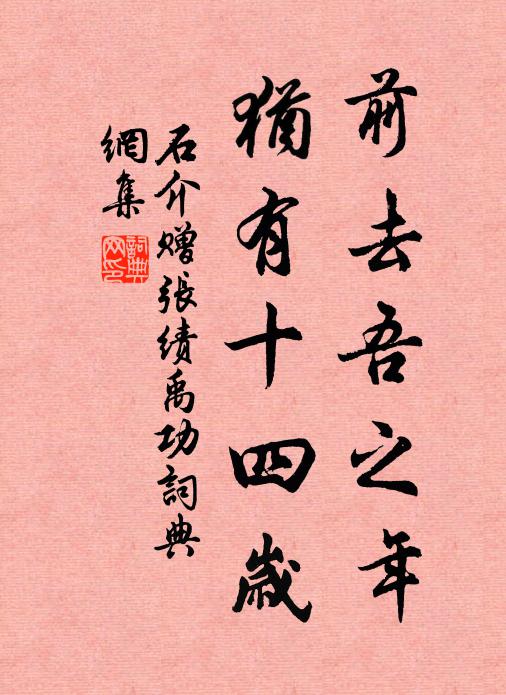 前去吾之年
猶有十四歲
石介贈張績禹功詞典
網集
詞典
网印